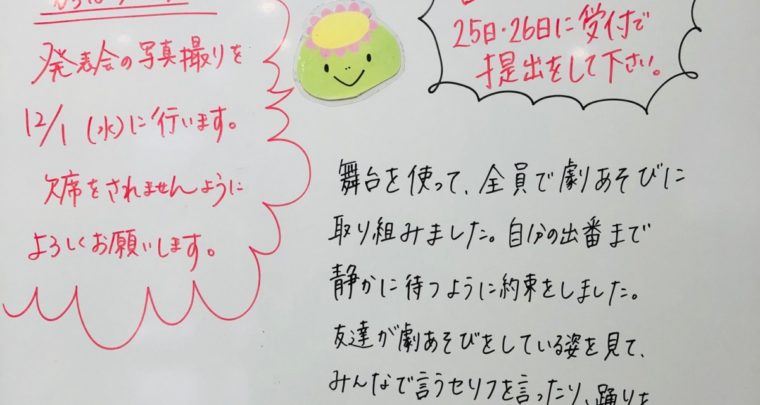 発表会の写真撮りを
12/1 (水)に行います。
欠席をされませんように
よろしくお願いします。
25日・26日に受付で
提出をして下さい。
舞台を使って、全員で劇あそびに
取り組みました。自分の出番まで
静かに待つように約束をしました。
友達が劇あそびをしている姿を見て、
みんなで言うセリフを言ったり、踊りを